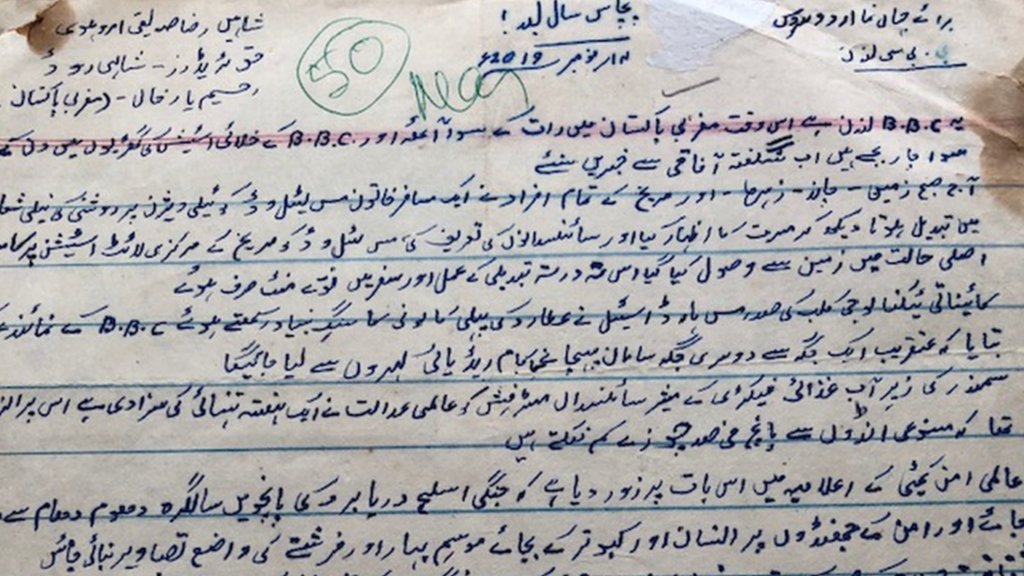 شاہین رضا صدیقی امروہوی
حق ٹریڈرز - شاہی روڈ
رحیم یار خاں - (مغربی پاکستان
50
پچاس سال بعد!
نومبر 2019ء
برائے جہاں نما اردو سروس
بی. بی سی لندن
یہ B.B.C لندن ہے اس وقت مغربی پاکستان میں رات کے سوا آٹھ اور B.B.C. کے خلائی اسٹیشن کی گھڑیوں میں دن کے
سوا چار بجے ہیں اب شگفتہ آفاقی سے خبریں سنئے
آج صبح زمین - چاند - زہرہ - اور مریخ کے تمام افراد نے ایک مسافر خاتون مس لیٹل وڈ کو ٹیلی ویژن پر روشنی کی نیلی
میں تبدیل ہوتا دیکھ کر مسرت کا اظہار کیا اور سائنسدانوں کی تعریف کی مس لٹل وڈ کو مریخ کے مرکزی لائٹ اسٹیشن پر
اصلی حالت میں زمین سے وصول کیا گیا اس تبدیلی کے عمل اور سفر میں منٹ صرف ہوئے
کائیناتی ٹیکنالوجی کلب کی صدر مس ہاوڈ اسٹیل نے عطارد کی پہلی کالونی کا سنگِ بنیاد رکھتے ہوئے B.B.C کے نمائندہ
بتایا کہ عنقریب ایک جگہ سے دوسری جگہ سامان پہنچانے کا کام ریڈیائی لہروں سے لیا جائیگا
سمندر کی زیرِ آب غذائی فیکٹری کے سائنسداں مسٹر فش کو عالمی عدالت نے ایک ہفتہ تنہائی کی سزا دی ہے اس پر
تھا کہ مصنوعی انڈوں سے پانچ فی صد چوزے کم نکلتے ہیں
عالمی امن کمیٹی کے اعلامیہ میں اس بات پر زور دیا ہے کہ جنگی اسلحہ دریا برد کی پانچویں سالگرہ دھوم دھام سے
جائے اور امن کے جھنڈوں پر انسان اور کبوتر کے بجائے موسمِ بہار اور فرشتے کی واضع تصاویر بنائی جائیں